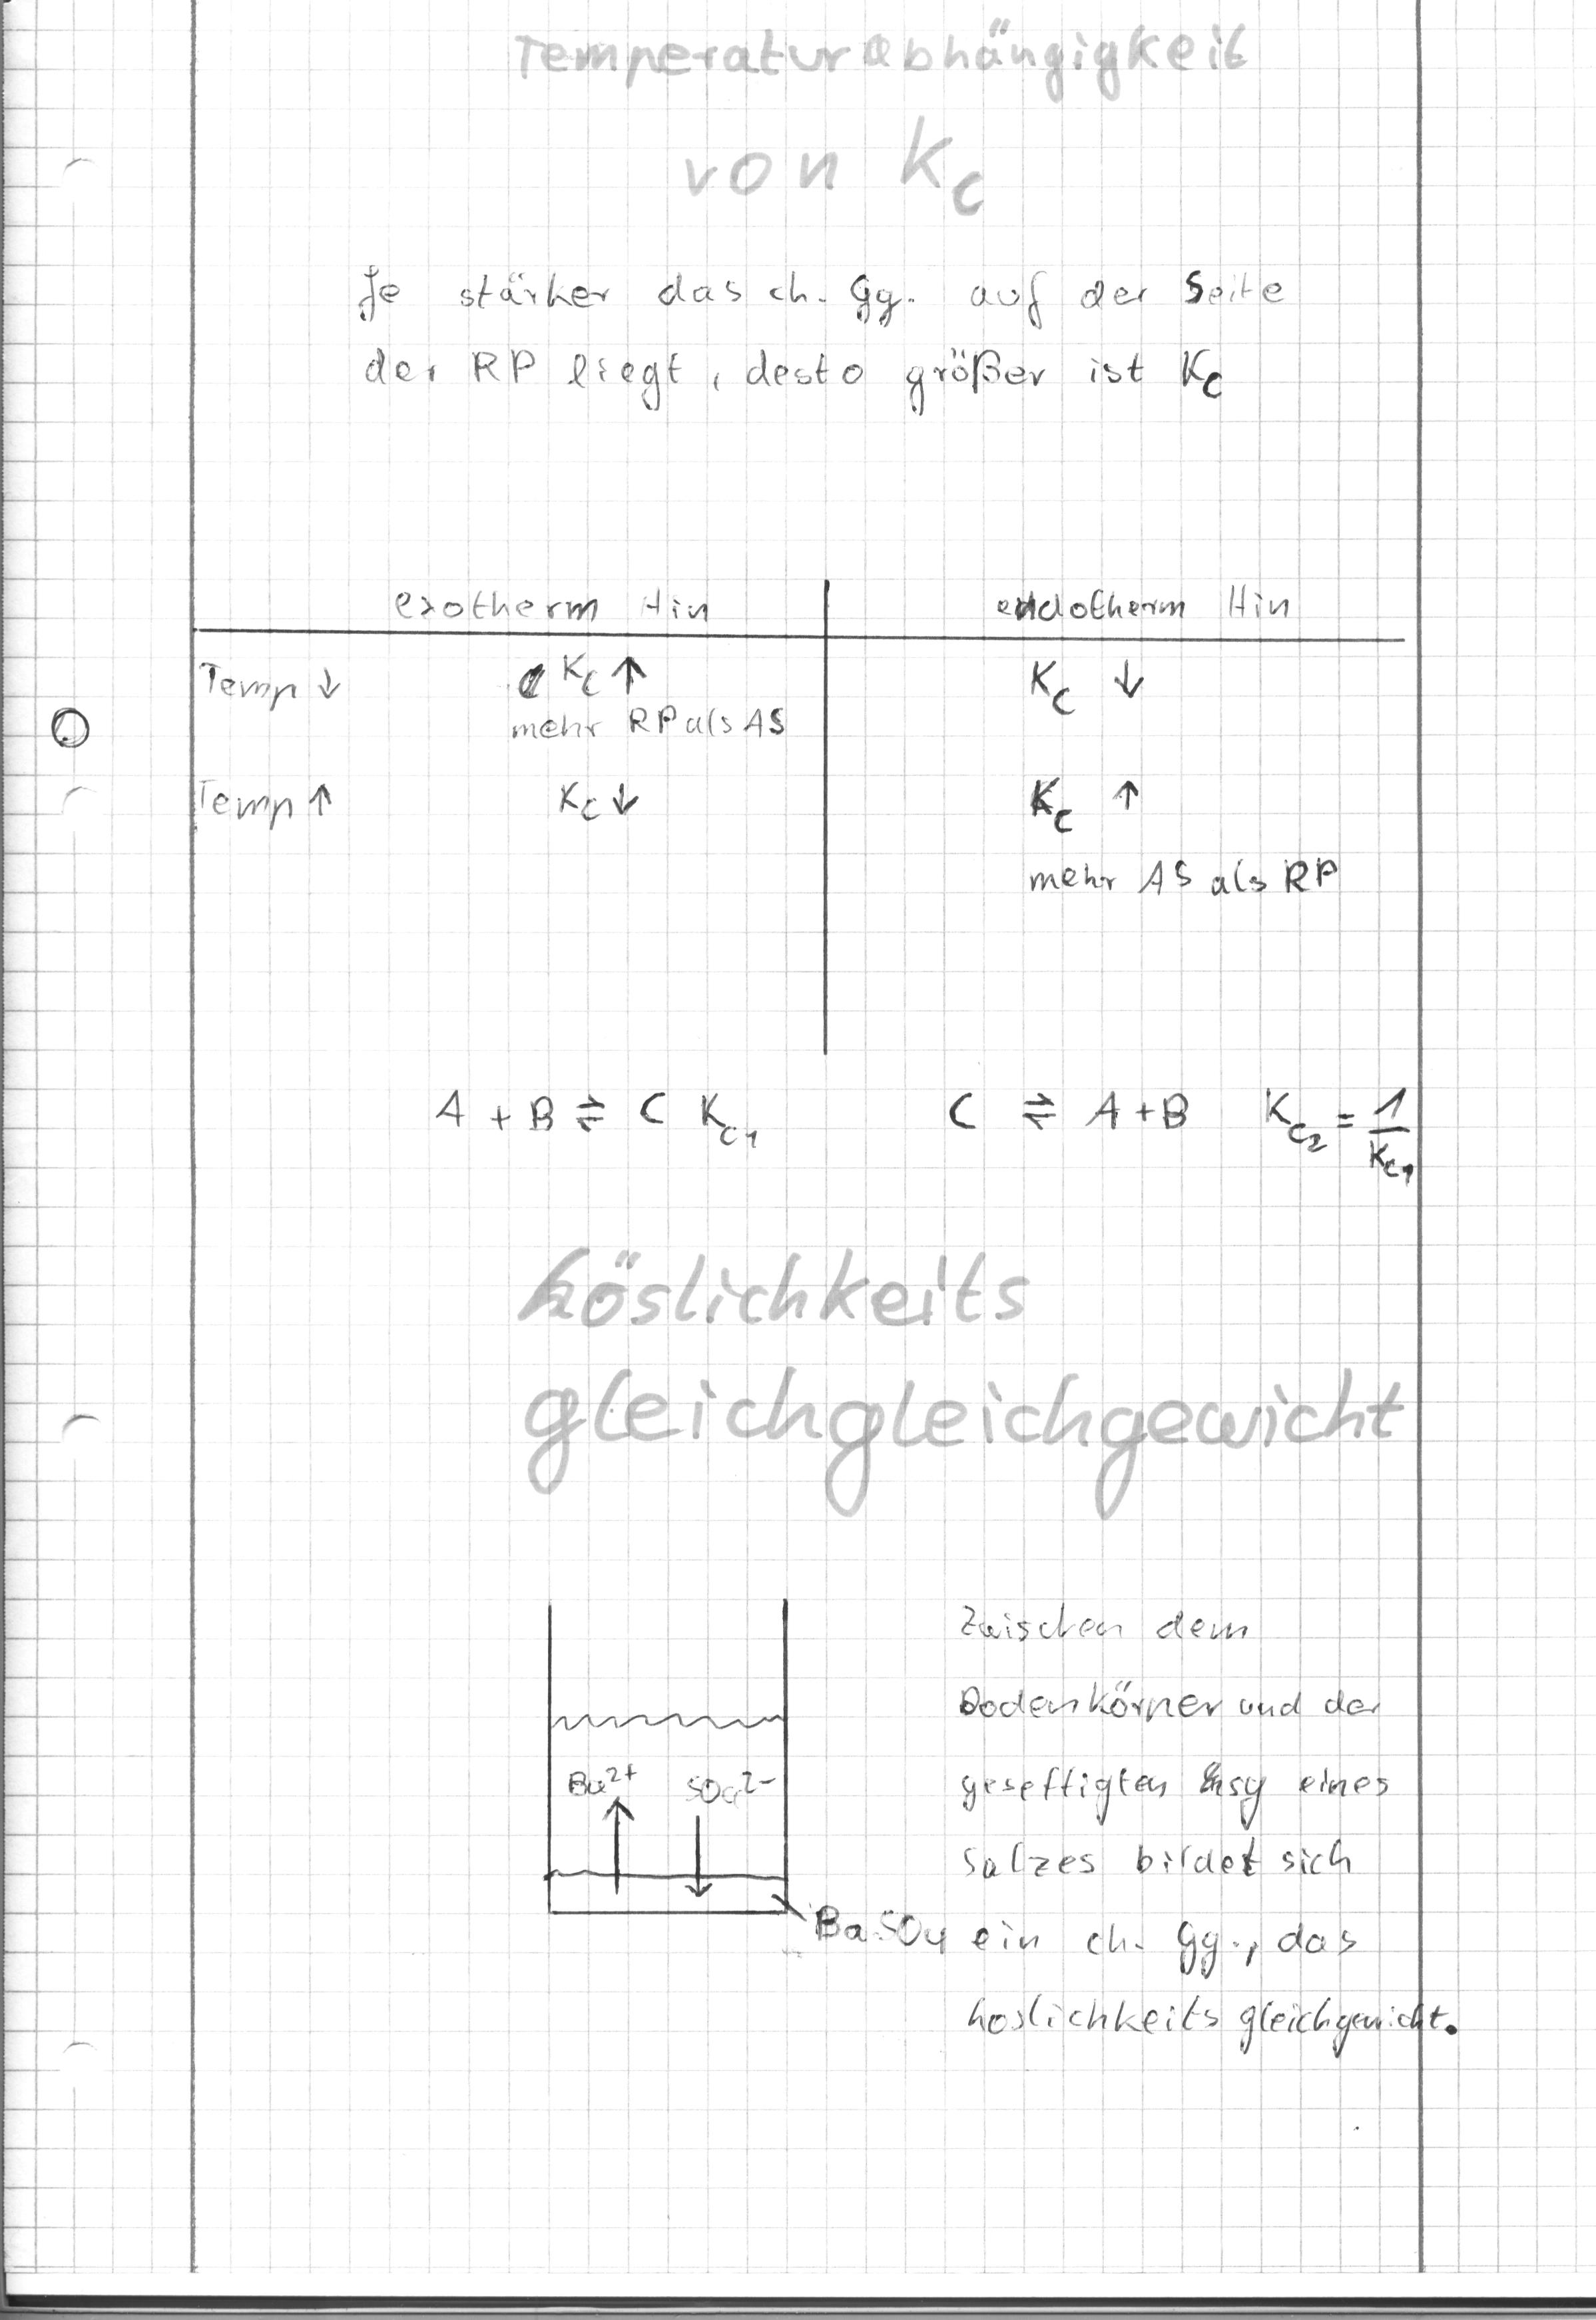 Temperaturabhängigkeit
von Kc
Je stärker das ch. Gg. auf der Seite
der RP liegt, desto größer ist Kc
exotherm Hin endotherm Hin
Temp ↓ Kc ↑ Kc ↓
mehr RP als AS
Temp ↑ Kc ↓ Kc ↑
mehr AS als RP
A + B ⇌ C Kc1 C ⇌ A + B Kc2 = 1/Kc1
höslichkeits
gleichgleichgewicht
Ba²⁺ SO₄²⁻
BaSO₄
Zwischen dem
Bodenkörper und der
geseftigten eines
Salzes bildet sich
ein ch. Gg., das
höslichkeitsgleichgewicht.